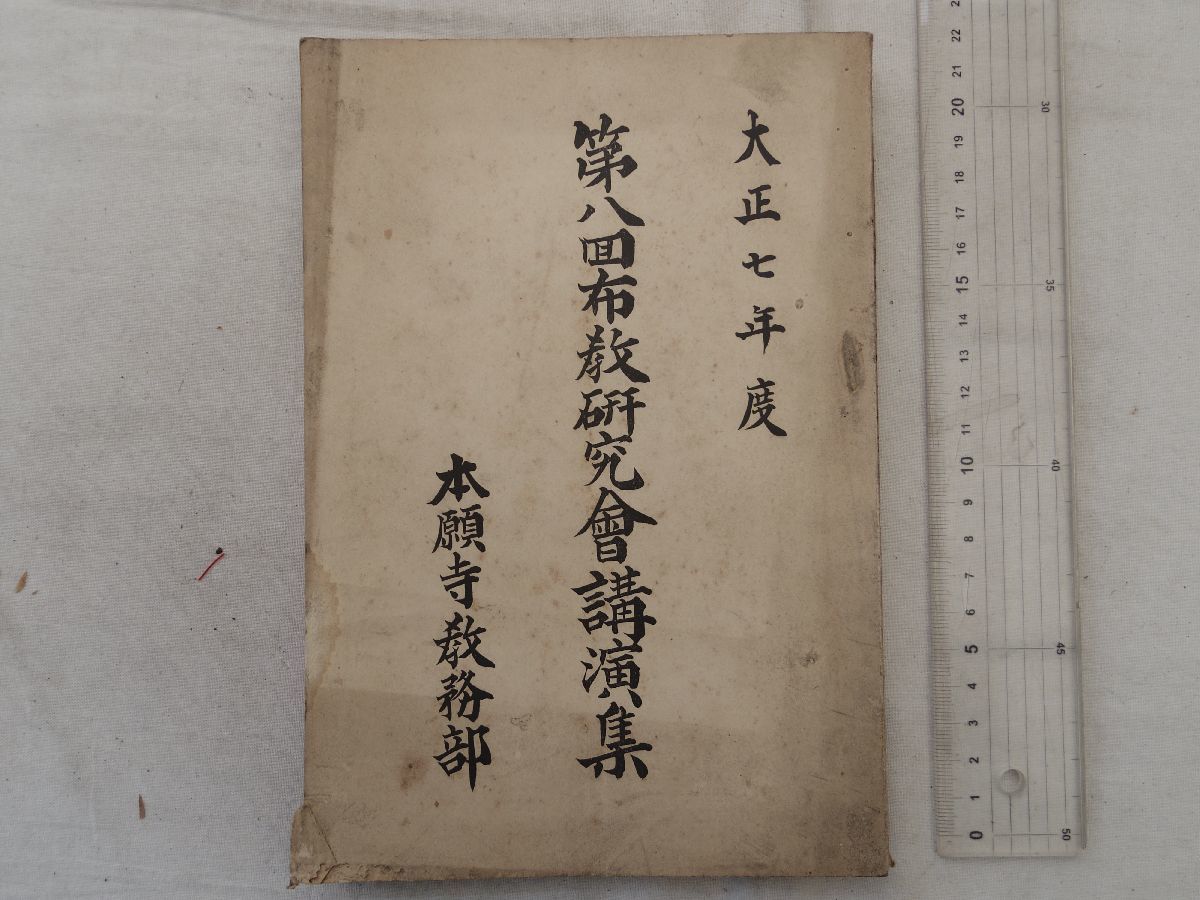 大正七年度
第八回布教研究會講演集
本願寺教務部
22
21
20
19
18
17
16
15
14
13
12
11
10
9
8
7
6
5
4
3
2
1
0
30
35
40
45
50